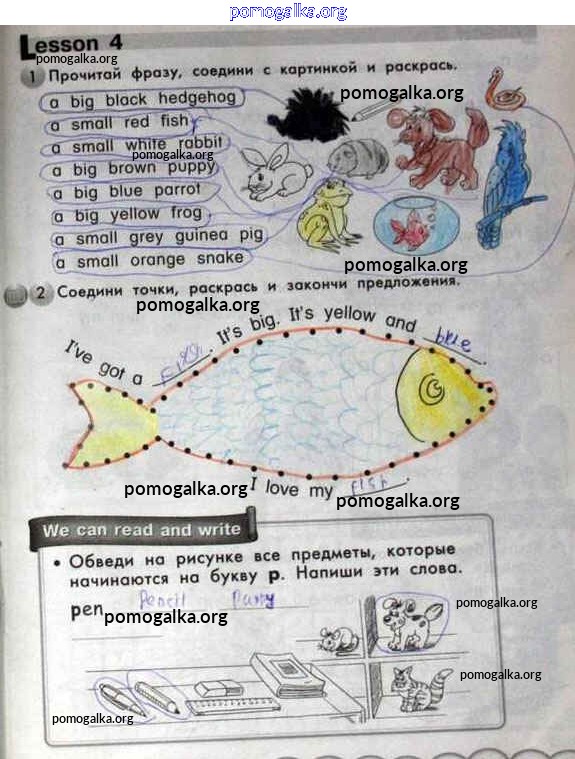 pomogalka.org
Lesson 4
pomogalka.org
1 Прочитай фразу, соедини с картинкой и раскрась.
pomogalka.org
a big black hedgehog
a small red fish
a small white rabbit
pomogalka.org
a big brown puppy
a big blue parrot
a big yellow frog
a small grey guinea pig
a small orange snake
pomogalka.org
2 Соедини точки, раскрась и закончи предложения.
pomogalka.org
I've got a fish. It's big. It's yellow and blue.
I love my fish.
pomogalka.org
pomogalka.org
We can read and write
• Обведи на рисунке все предметы, которые
начинаются на букву p. Напиши эти слова.
pen pencil
pomogalka.org
pomogalka.org
pomogalka.org
pomogalka.org